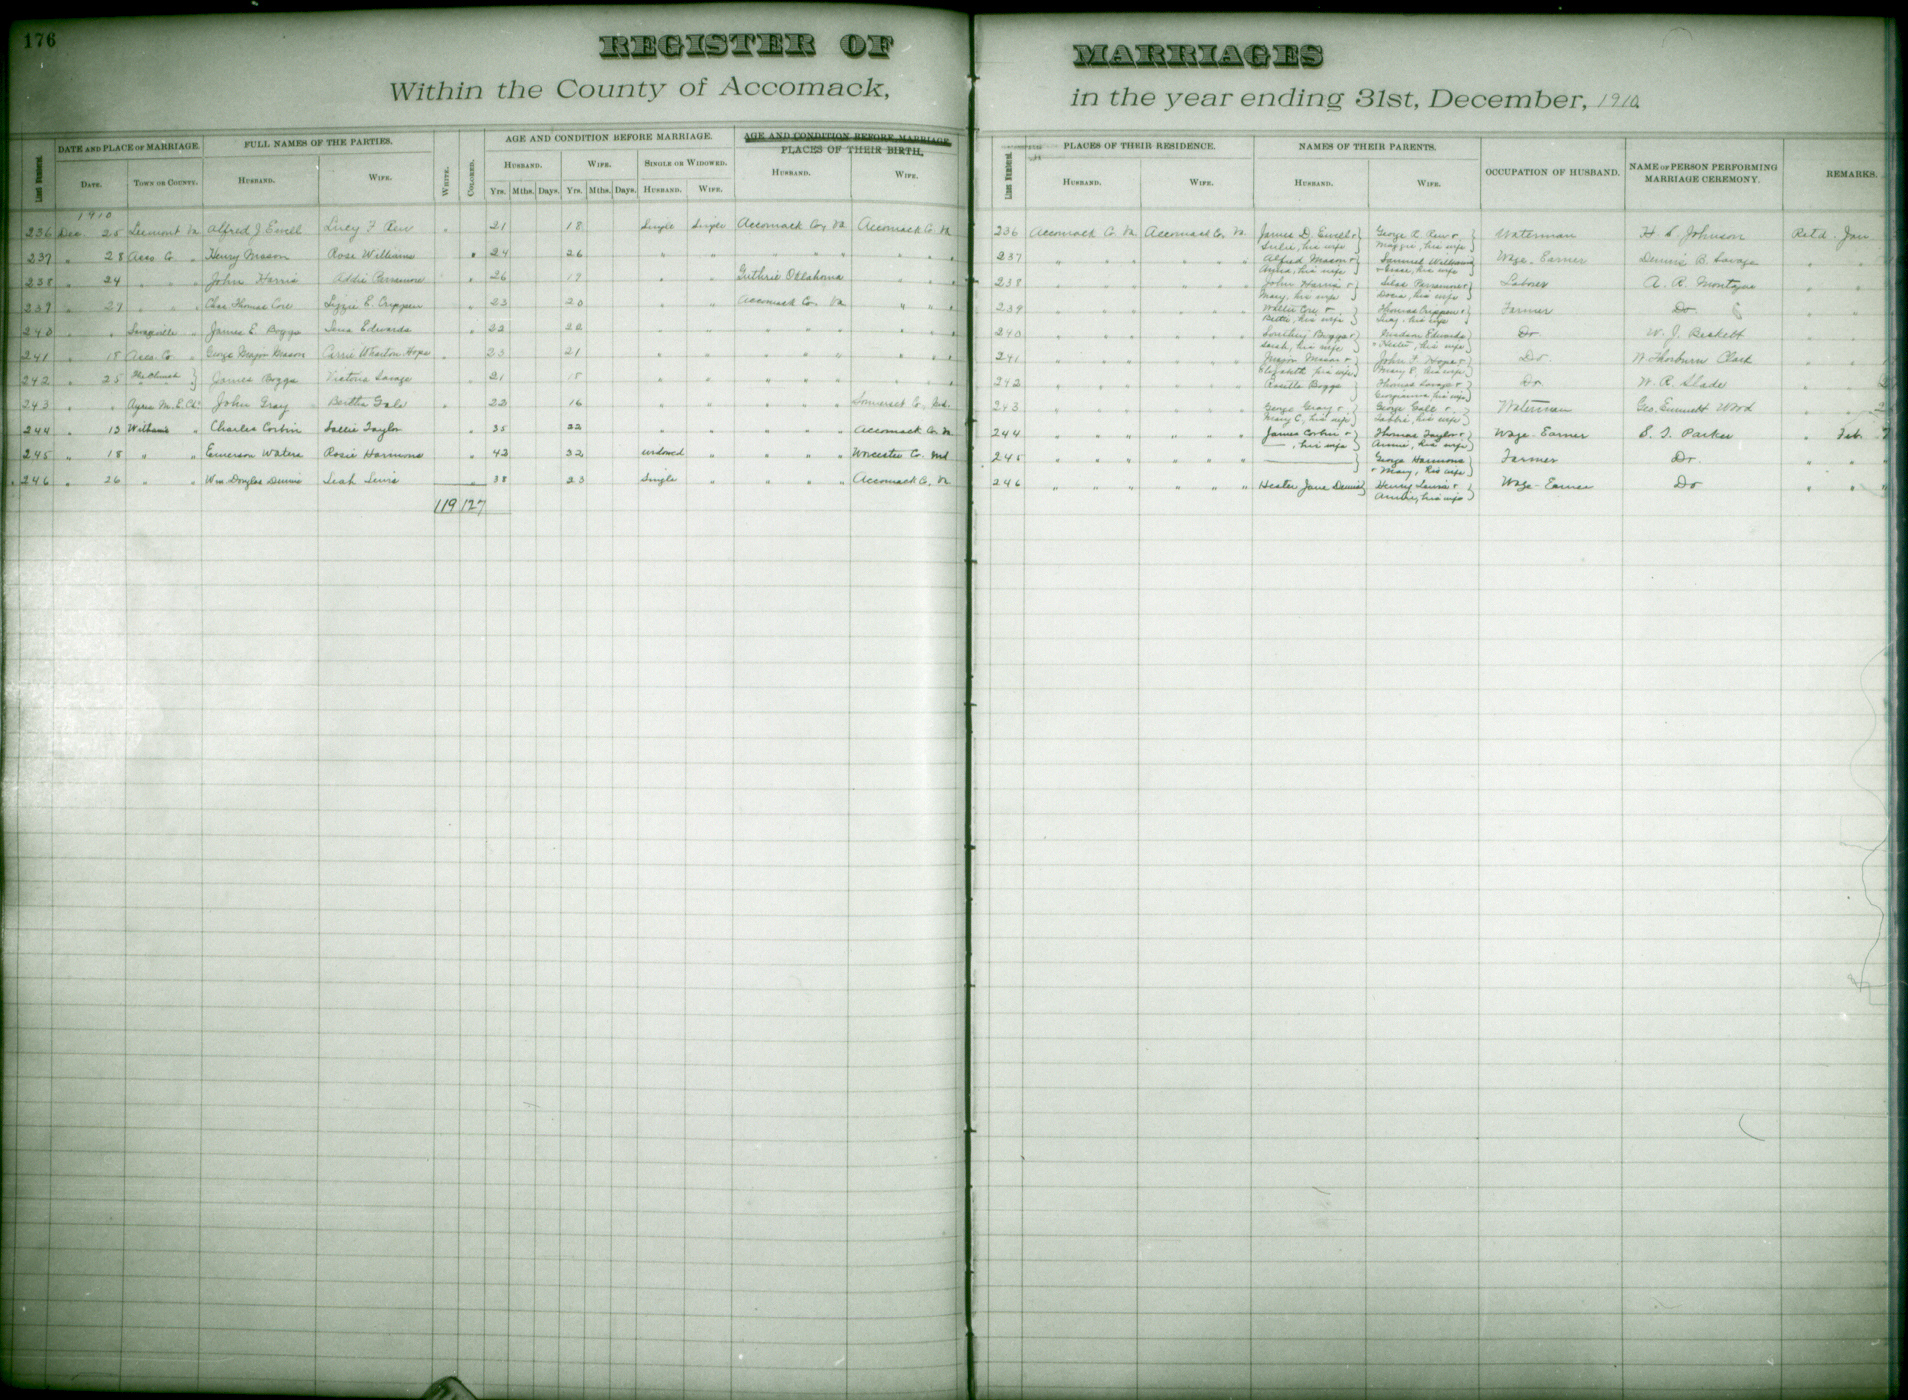 176
REGISTER OF MARRIAGES
Within the County of Accomack, in the year ending 31st, December, 1910
LINE NUMBER. DATE AND PLACE OF MARRIAGE. FULL NAMES OF THE PARTIES. WHITE. COLORED. AGE AND CONDITION BEFORE MARRIAGE. AGE AND CONDITION BEFORE MARRIAGE.
PLACES OF THEIR BIRTH.
DATE. TOWN OR COUNTY. HUSBAND. WIFE. HUSBAND. WIFE. SINGLE OR WIDOWED. HUSBAND. WIFE.
Yrs. Mths. Days. Yrs. Mths. Days. HUSBAND. WIFE.
1910
236 Dec. 25 Leemont Va Alfred J Ewell Lucy F Rew " 21 18 Single Single Accomack Coy Va Accomack Co. Va
237 " 28 Acco. Co " Henry Mason Rose Williams " 24 26 " " " " " " " "
238 " 24 " " " John Harris Addie Parramore " 26 19 " " Guthrie Oklahoma " " "
239 " 27 " " " Chas Thomas Core Lizzie E. Crippen " 23 20 " " Accomack Co. Va " " "
240 " " Savageville " James E. Boggs Lena Edwards " 22 22 " " " " " " " "
241 " 18 Acco. Co. " George Major Mason Carrie Wharton Hope " 23 21 " " " " " " " "
242 " 25 The Church } James Boggs Victoria Savage " 21 18 " " " " " " " "
243 " " Ayres M. E. Ch. John Gray Bertha Gale " 22 16 " " " " " Somerset Co. Md.
244 " 13 Withams " Charles Corbin Sallie Taylor " 35 22 " " " " " Accomack Co. Va
245 " 18 " " Emerson Waters Rosie Harmons " 43 32 widowed " " " " Worcester Co. Md
246 " 26 " " Wm Douglas Dennis Leah Lewis " 38 23 Single " " " " Accomack Co. Va
119 127
LINE NUMBER. PLACES OF THEIR RESIDENCE. NAMES OF THEIR PARENTS. OCCUPATION OF HUSBAND. NAME OF PERSON PERFORMING MARRIAGE CEREMONY. REMARKS.
HUSBAND. WIFE. HUSBAND. WIFE.
236 Accomack Co. Va Accomack Co. Va James D. Ewell & George R. Rew & Waterman H. S. Johnson Retd. Jan
his wife } Maggie, his wife }
237 " " " " " " Alfred Mason & Samuel Williams Wage-Earner Dennis B. Savage
his wife } his wife }
238 " " " " " " John Harris & Silas Parramore & Laborer A. R. Montague
Mary, his wife } his wife }
239 " " " " " " Core & Thomas Crippen & Farmer Do
his wife } his wife }
240 " " " " " " Boggs & Edwards Do W. J. Beckett
Sarah, his wife } & Hester, his wife }
241 " " " " " " Major Mason & John F. Hope & Do. W. Thorburn Clark
Elizabeth his wife } Mary E. his wife }
242 " " " " " " Boggs } Thomas Savage & Do W. R. Slade
Georgianna, his wife }
243 " " " " " " George Gray & George Gale & Waterman Geo. Emmett Wood
Mary C, his wife } his wife }
244 " " " " " " James Corbin & Thomas Taylor & Wage-Earner S. T. Parker " Feb.
—, his wife } Annie, his wife }
245 " " " " " " — } George Harmons Farmer Do. " "
& Mary, his wife }
246 " " " " " " Hester Jane Dennis } Henry Lewis & Wage-Earner Do " "
his wife }